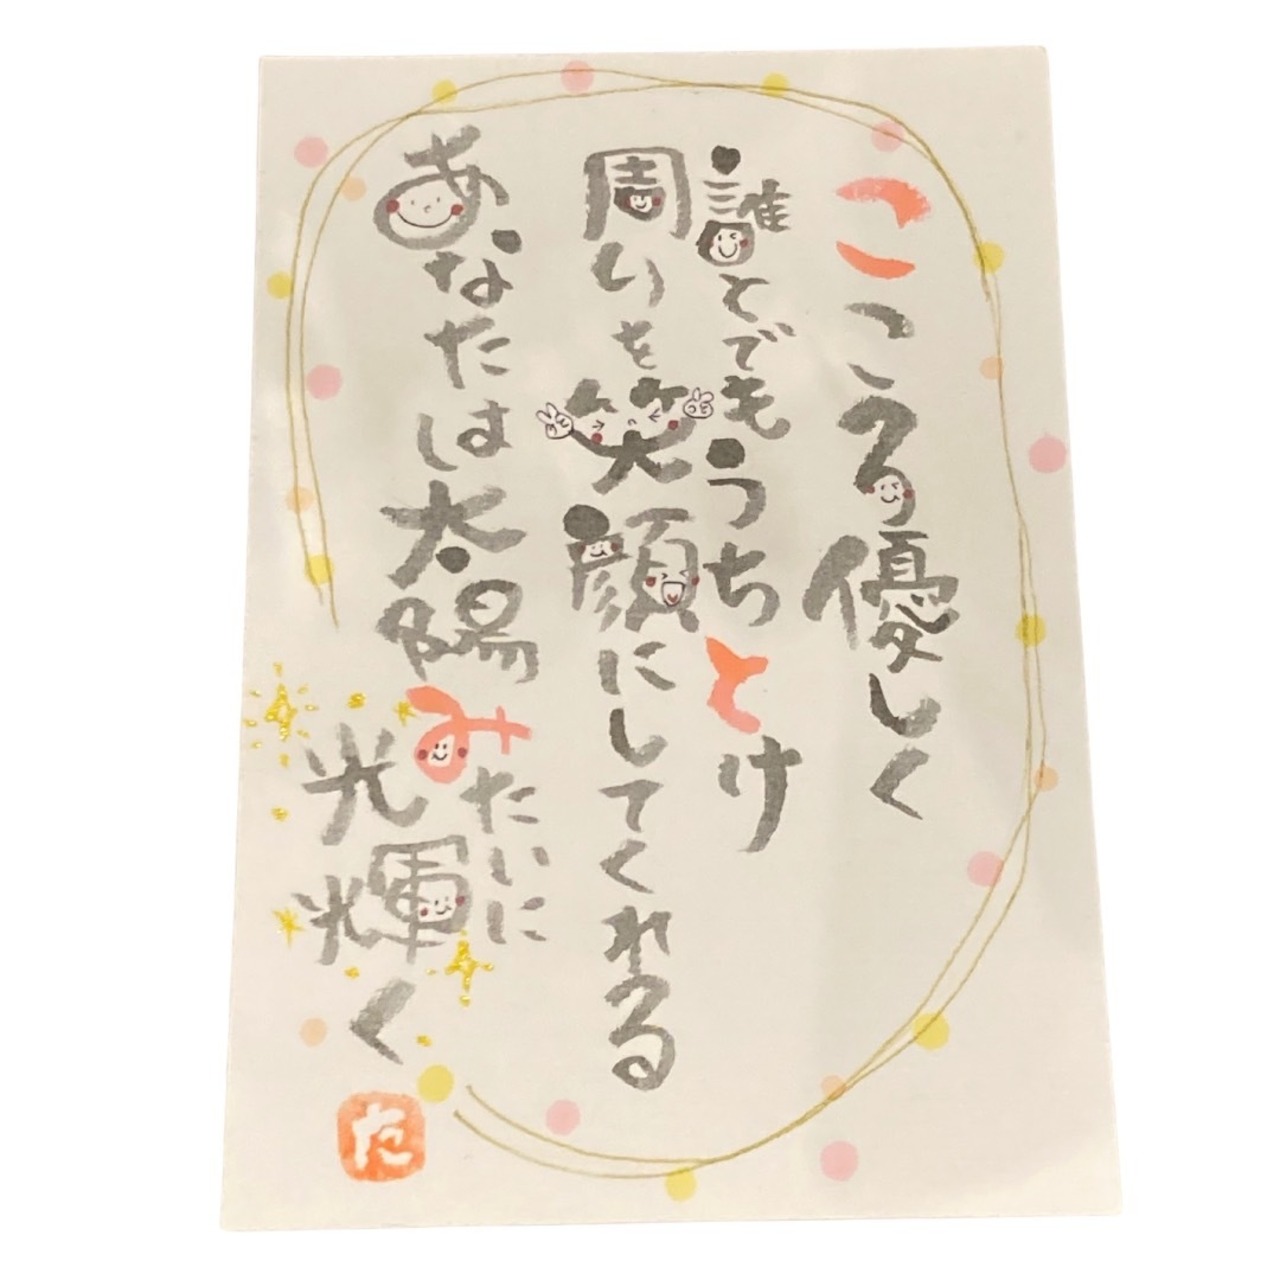 こころ優しく
誰とでもうちとけ
周りを笑顔にしてくれる
あなたは太陽みたいに
光輝く
た